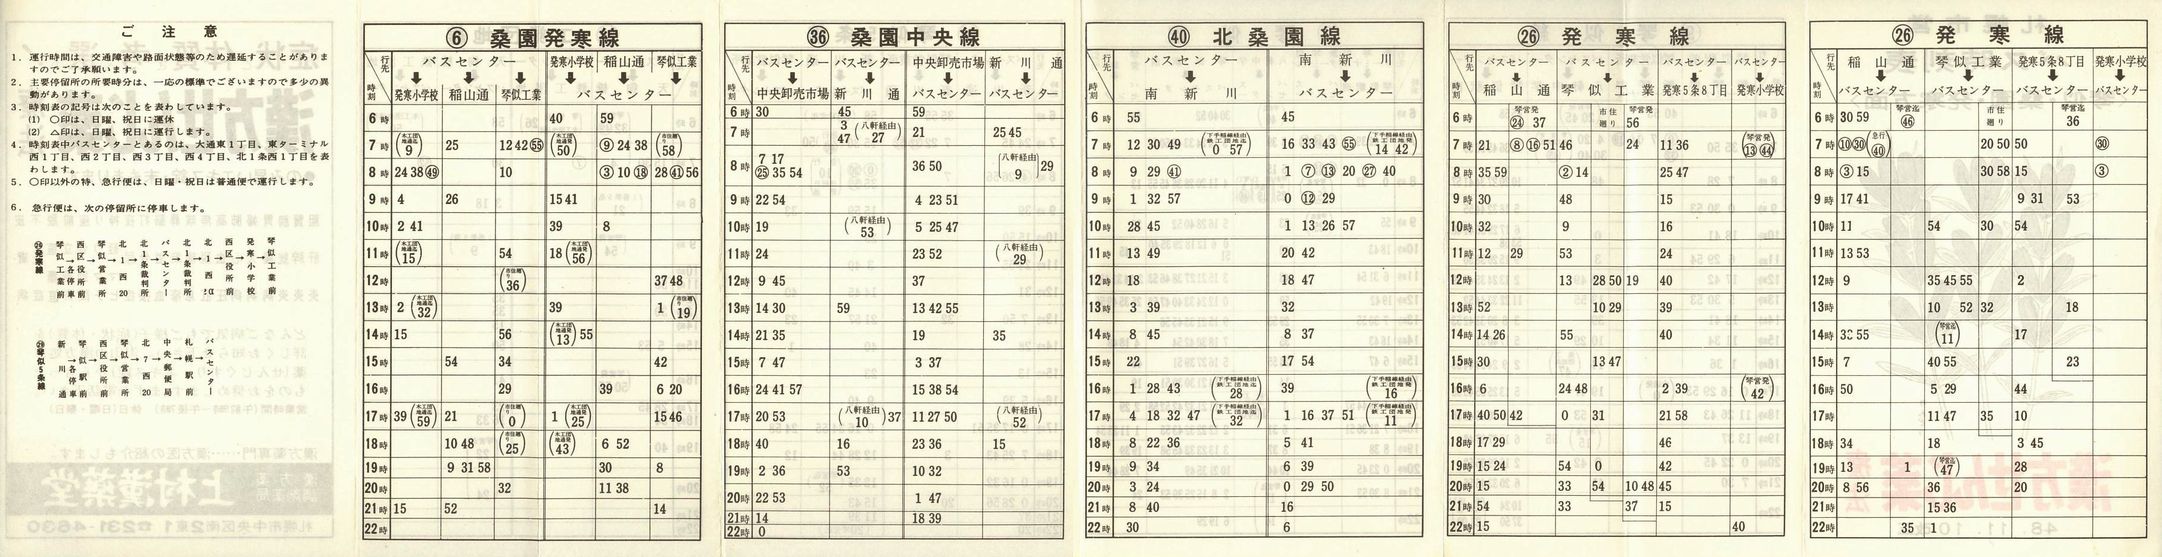 ご注意
1．運行時間は、交通障害や路面状態等のため遅延することがありま
すのでご了承願います。
2．主要停留所の所要時分は、一応の標準でございますので多少の異
動があります。
3．時刻表の記号は次のことを表わしています。
(1) ○印は、日曜、祝日に運休
(2) △印は、日曜、祝日に運行します。
4．時刻表中バスセンターとあるのは、大通東1丁目、東ターミナル
西1丁目、西2丁目、西3丁目、西4丁目、北1条西1丁目を表わ
します。
5．○印以外の特、急行便は、日曜・祝日は普通便で運行します。
6．急行便は、次の停留所に停車します。
㉖発寒線
⑥ 桑園発寒線
行先 時刻
バスセンター 発寒小学校 稲山通 琴似工業
発寒小学校 稲山通 琴似工業 バスセンター
6時 40 59
7時 (木工団地通迄 9) 25 12 42 ㊺ (木工団地通発 50) ⑨ 24 38 (市住廻り 58)
8時 24 38 ㊾ 10 ③ 10 ⑱ 28 ㊶ 56
9時 4 26 15 41
10時 2 41 39 8
11時 (木工団地通迄 15) 54 18 (木工団地通発 56)
12時 (市住廻り 36) 37 48
13時 2 (木工団地通迄 32) 39 1 (市住廻り 19)
14時 15 56 (木工団地通発 13) 55
15時 54 34 42
16時 29 39 6 20
17時 39 (木工団地通迄 59) 21 (市住廻り 0) 1 (木工団地通発 25) 15 46
18時 10 48 (市住廻り 25) (木工団地通発 43) 6 52
19時 9 31 58 30 8
20時 32 11 38
21時 15 52 14
22時
㊱ 桑園中央線
行先 時刻
バスセンター バスセンター 中央卸売市場 新川通
中央卸売市場 新川通 バスセンター バスセンター
6時 30 45 59
7時 3 47 (八軒経由 27) 21 25 45
8時 7 17 ㉕ 35 54 36 50 (八軒経由 9) 29
9時 22 54 4 23 51
10時 19 (八軒経由 53) 5 25 47
11時 24 23 52 (八軒経由 29)
12時 9 45 37
13時 14 30 59 13 42 55
14時 21 35 19 35
15時 7 47 3 37
16時 24 41 57 15 38 54
17時 20 53 (八軒経由 10) 37 11 27 50 (八軒経由 52)
18時 40 16 23 36 15
19時 2 36 53 10 32
20時 22 53 1 47
21時 14 18 39
22時 0
㊵ 北桑園線
行先 時刻
バスセンター 南新川
南新川 バスセンター
6時 55 45
7時 12 30 49 (下手稲線経由 鉄工団地迄 0 57) 16 33 43 ㊺ (下手稲線経由 鉄工団地発 14 42)
8時 9 29 ㊶ 1 ⑦ ⑬ 20 ㉗ 40
9時 1 32 57 0 ⑫ 29
10時 28 45 1 13 26 57
11時 13 49 20 42
12時 18 18 47
13時 3 39 32
14時 8 45 8 37
15時 22 17 54
16時 1 28 43 (下手稲線経由 鉄工団地迄 28) 39 (下手稲線経由 鉄工団地発 16)
17時 4 18 32 47 (下手稲線経由 鉄工団地迄 32) 1 16 37 51 (下手稲線経由 鉄工団地発 11)
18時 8 22 36 5 41
19時 9 34 6 39
20時 3 24 0 29 50
21時 8 40 16
22時 30 6
㉖ 発寒線
行先 時刻
バスセンター バスセンター バスセンター バスセンター
稲山通 琴似工業 発寒5条8丁目 発寒小学校
6時 琴営発 ㉔ 37 市住廻り 琴営発 56
7時 21 ⑧ ⑯ 51 46 24 11 36 (琴営発 ⑬ ㊹)
8時 35 59 ② 14 25 47
9時 30 48 15
10時 32 9 16
11時 12 29 53 24
12時 13 28 50 19 40
13時 52 10 29 39
14時 14 26 55 40
15時 30 13 47
16時 6 24 48 2 39 (琴営発 42)
17時 40 50 42 0 31 21 58
18時 17 29 46
19時 15 24 54 0 42
20時 15 33 54 10 48 45
21時 54 33 37 15
22時 15 40
㉖ 発寒線
行先 時刻
稲山通 琴似工業 発寒5条8丁目 発寒小学校
バスセンター バスセンター バスセンター バスセンター
6時 30 59 琴営迄 ㊻ 市住廻り 琴営迄 36
7時 ⑩ ㉚ (急行 ㊵) 20 50 50 ㉚
8時 ③ 15 30 58 15 ③
9時 17 41 9 31 53
10時 11 54 30 54
11時 13 53
12時 9 35 45 55 2
13時 10 52 32 18
14時 32 55 (琴営迄 11) 17
15時 7 40 55 23
16時 50 5 29 44
17時 11 47 35 10
18時 34 18 3 45
19時 13 1 (琴営迄 47) 28
20時 8 56 36 20
21時 15 36
22時 35 1